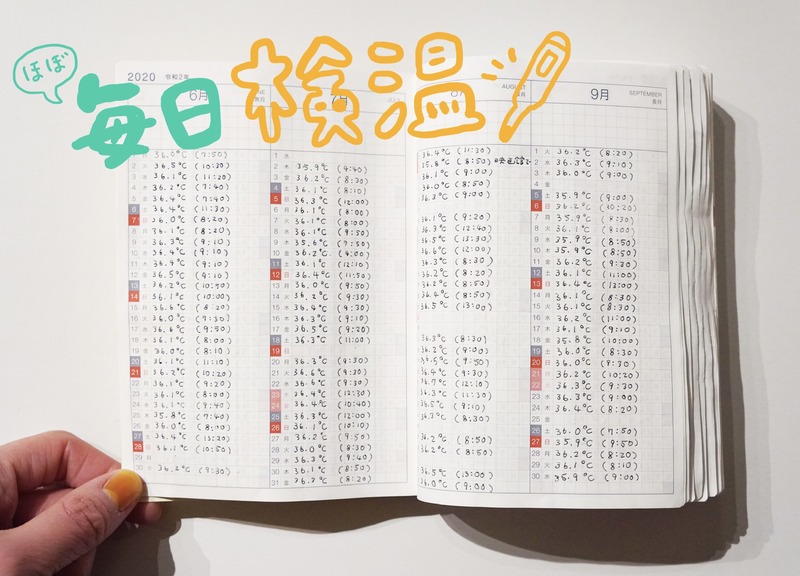 ほぼ
毎日検温
2020 令和2年
6月
7月
AUGUST
9月 SEPTEMBER
長月
1 月 36.0℃ (7:50)
2 火 36.5℃ (10:30)
3 水 36.1℃ (11:20)
4 木 36.2℃ (7:40)
5 金 36.4℃ (7:40)
6 土 36.4℃ (11:30)
7 日 36.0℃ (8:20)
8 月 36.1℃ (8:20)
9 火 36.3℃ (9:10)
10 水 36.4℃ (9:10)
11 木 36.5℃ (9:10)
12 金 36.5℃ (9:10)
13 土 36.2℃ (10:50)
14 日 36.1℃ (10:00)
15 月 (8:20)
16 火 36.0℃ (7:30)
17 水 36.6℃ (9:50)
18 木 36.1℃ (8:00)
19 金 36.0℃ (8:10)
20 土 36.1℃ (11:10)
21 日 36.2℃ (10:20)
22 月 36.1℃ (9:20)
23 火 36.1℃ (8:00)
24 水 36.1℃ (9:40)
25 木 35.8℃ (7:40)
26 金 36.0℃ (8:00)
27 土 36.4℃
28 日 36.1℃ (10:50)
29 月
30 火 36.2℃ (9:30)
1 水
2 木 35.9℃ (9:40)
3 金 36.2℃ (8:30)
4 土 36.1℃ (8:10)
5 日 36.3℃ (12:00)
6 月 36.1℃ (8:00)
7 火 36.1℃ (8:00)
8 水 36.1℃ (9:50)
9 木 35.6℃ (7:50)
10 金 36.2℃ (8:40)
11 土 36.1℃ (12:10)
12 日 36.4℃ (11:50)
13 月 36.0℃ (9:50)
14 火 36.2℃ (9:30)
15 水 36.4℃ (9:30)
16 木 36.3℃ (9:10)
17 金 36.5℃ (9:20)
18 土 36.3℃ (11:00)
19 日
20 月 36.3℃ (9:30)
21 火 36.6℃ (9:30)
22 水 36.6℃ (9:30)
23 木 36.4℃ (12:30)
24 金 36.4℃ (10:40)
25 土 36.3℃ (12:00)
26 日 36.1℃ (10:10)
27 月 36.2℃ (9:50)
28 火 36.0℃ (8:50)
29 水 36.3℃ (9:40)
30 木 36.1℃ (8:50)
31 金 36.2℃ (8:20)
36.4℃ (11:30)
35.8℃ (8:50)
36.1℃ (9:00)
36.0℃ (8:50)
36.3℃ (9:00)
36.1℃ (9:20)
36.3℃ (12:40)
36.5℃ (13:30)
36.6℃ (12:00)
36.3℃ (8:50)
36.2℃ (8:20)
36.2℃ (8:50)
36.4℃ (8:50)
36.5℃ (13:00)
36.3℃ (8:30)
36.2℃ (9:00)
36.5℃ (9:50)
36.4℃ (9:30)
(12:10)
36.3℃ (11:30)
36.5℃ (9:10)
36.3℃ (8:30)
36.2℃ (8:50)
36.2℃ (8:50)
36.5℃ (13:00)
36.0℃ (9:00)
1 火 36.2℃ (8:20)
2 水 36.3℃ (9:10)
3 木 36.0℃ (9:00)
4 金
5 土 35.9℃ (9:00)
6 日 36.2℃ (10:20)
7 月 35.9℃ (8:30)
8 火 36.1℃ (8:00)
9 水 35.9℃ (8:50)
10 木 35.9℃ (8:50)
11 金 36.2℃ (8:30)
12 土 36.1℃ (11:50)
13 日 36.4℃ (12:00)
14 月 36.1℃ (8:30)
15 火 36.4℃ (9:10)
16 水 36.2℃ (11:00)
17 木 36.1℃ (9:00)
18 金 35.8℃ (10:00)
19 土 36.0℃ (8:30)
20 日 36.0℃ (9:30)
21 月 36.2℃ (10:20)
22 火 36.2℃ (9:30)
23 水 36.3℃ (9:00)
24 木 36.4℃ (8:20)
25 金
26 土 36.0℃ (7:50)
27 日 35.9℃ (9:50)
28 月 36.2℃ (8:50)
29 火 36.1℃ (8:10)
30 水 35.9℃ (9:00)